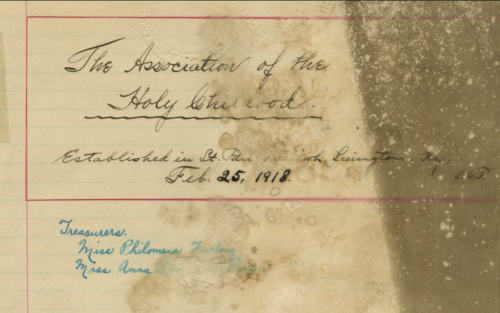 The Association of the
Holy Childhood.
Established in St.
Feb. 25, 1918.
Treasurers.
Miss Philomena
Miss Anna